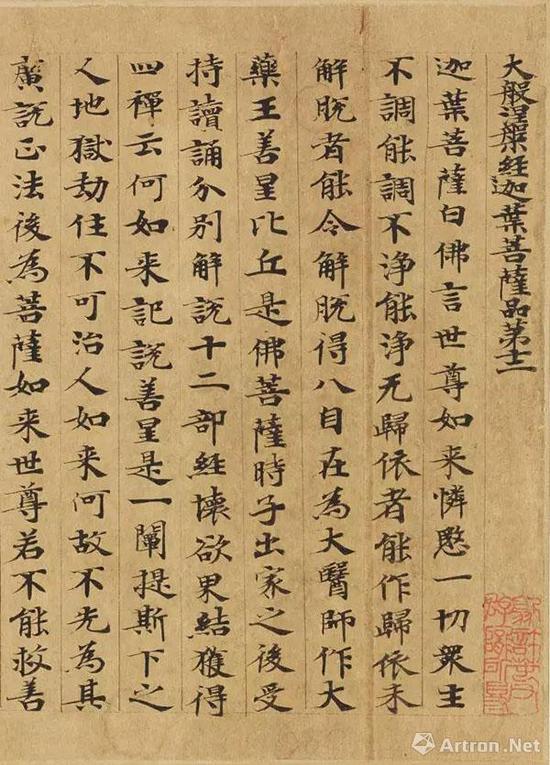 大般涅槃經迦葉菩薩品第十二
迦葉菩薩白佛言世尊如来憐愍一切衆生
不調能調不浄能浄无歸依者能作歸依未
解脫者能令解脫得八自在為大醫師作大
藥王善星比丘是佛菩薩時子出家之後受
持讀誦分別解說十二部經壞欲界結獲得
四禪云何如来記說善星是一闡提斯下之
人地獄劫住不可治人如来何故不先為其
廣說正法後為菩薩如来世尊若不能救善
Artron.Net